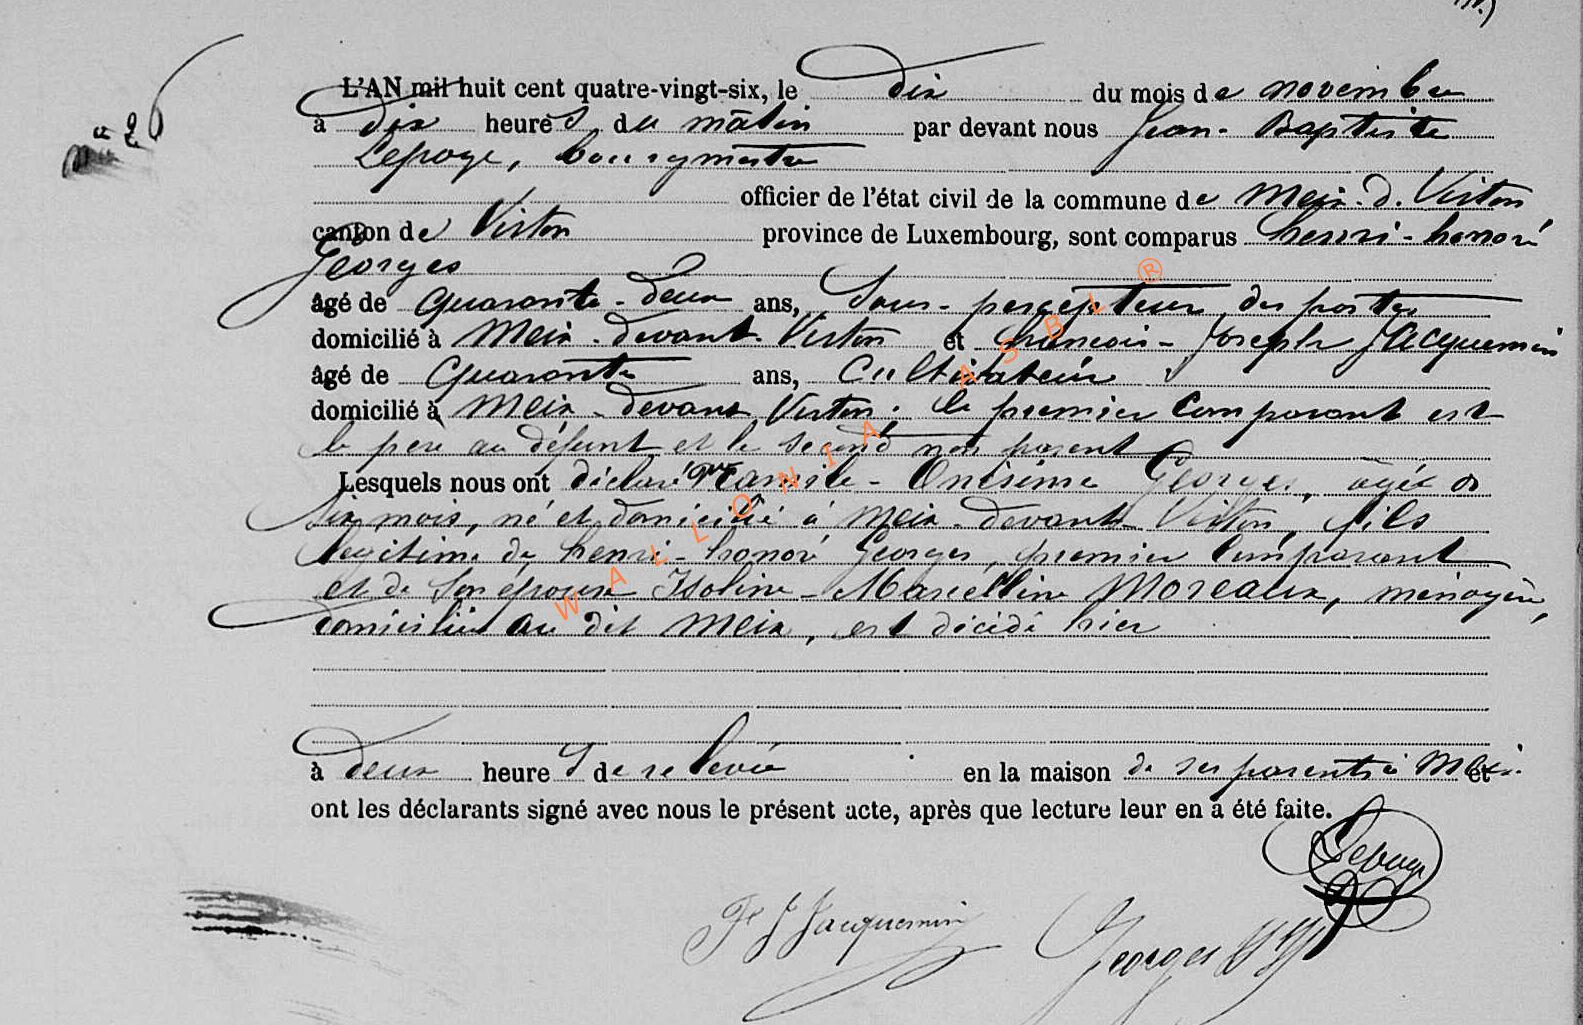 n° 26
L'AN mil huit cent quatre-vingt-six, le dix du mois de novembre
à dix heures du matin par devant nous Jean-Baptiste
Lepage, bourgmestre
officier de l'état civil de la commune de Meix-d.-Virton
canton de Virton province de Luxembourg, sont comparus henri-honoré
Georges
âgé de quarante-deux ans, Sous-percepteur des postes
domicilié à Meix-devant-Virton et françois-Joseph Jacquemin
âgé de quarante ans, Cultivateur
domicilié à Meix-devant Virton. le premier Comparant est
le père au défunt et le second non parent
Lesquels nous ont déclaré que Camile-Onésime Georges, âgé de
Six mois, né et domicilié à Meix-devant-Virton, fils
légitime de henri-honoré Georges, premier Comparant
et de son épouse Isoline-Marcelline Moreaux, ménagère,
domiciliée au dit Meix, est décédé hier
à deux heures de relevée en la maison de ses parents à Meix et
ont les déclarants signé avec nous le présent acte, après que lecture leur en a été faite.
Lepage
F J Jacquemin Georges HH
WALLONIA ASBL ®